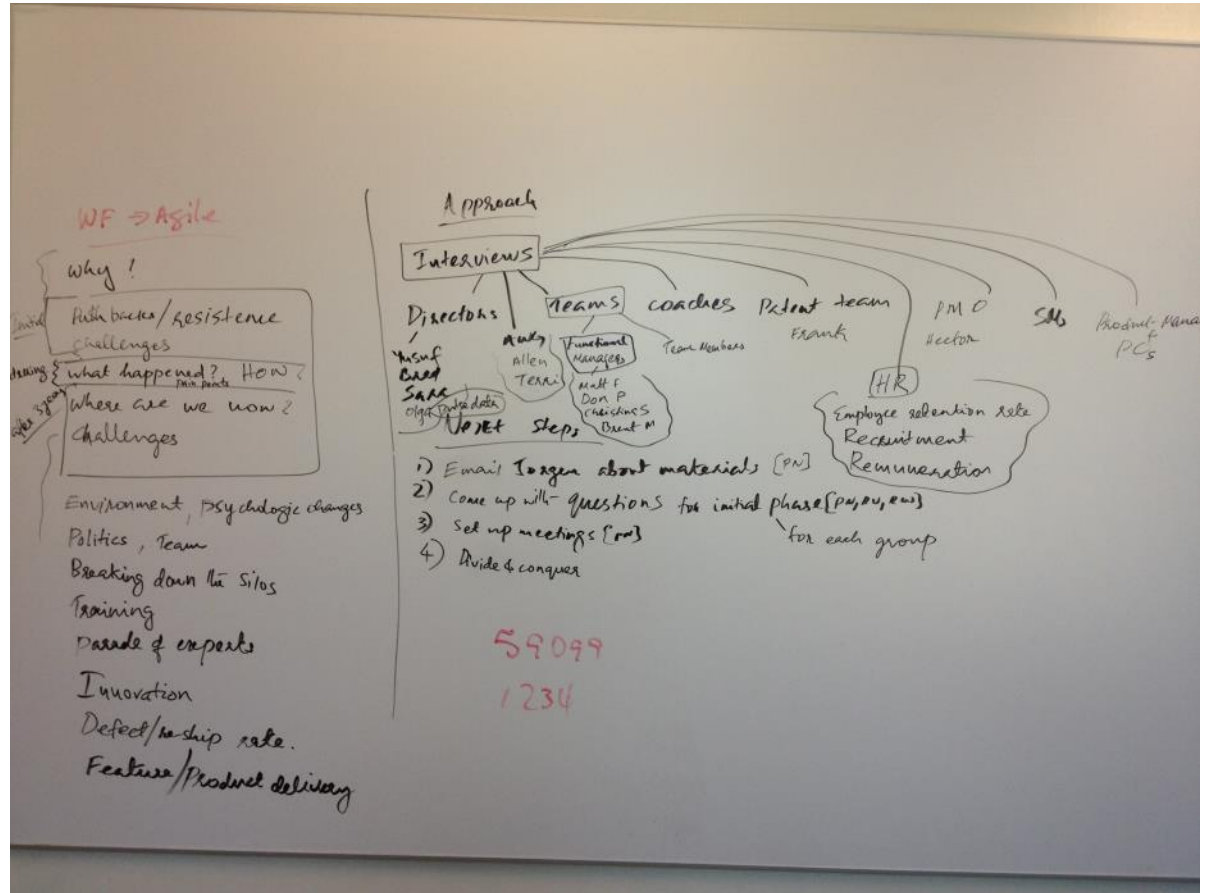 WF → Agile
Why !
Initial
Push backs/resistence
challenges
what happened?, HOW?
pain points
after 3 years
Where are we now?
challenges
Environment, psychologic changes
Politics, Team
Breaking down the silos
Training
Parade of experts
Innovation
Defect/re-ship rate.
Feature/Product delivery
Approach
Interviews
Directors
Yusuf
Bred
Sara
Olga
Pulse data
Allen
Terri
Teams
Functional
Managers
Matt F
Don P
Christine S
Brent M
Team Members
coaches
Patent team
Frank
HR
Employee retention rate
Recruitment
Remuneration
PMO
Hector
SMs
Product-Mana
+
PCs
Next Steps
1) Email Jorgen about materials [PN]
2) Come up with questions for initial phase [PN, PV, EW]
for each group
3) Set up meetings [PN]
4) Divide & conquer
59099
1234